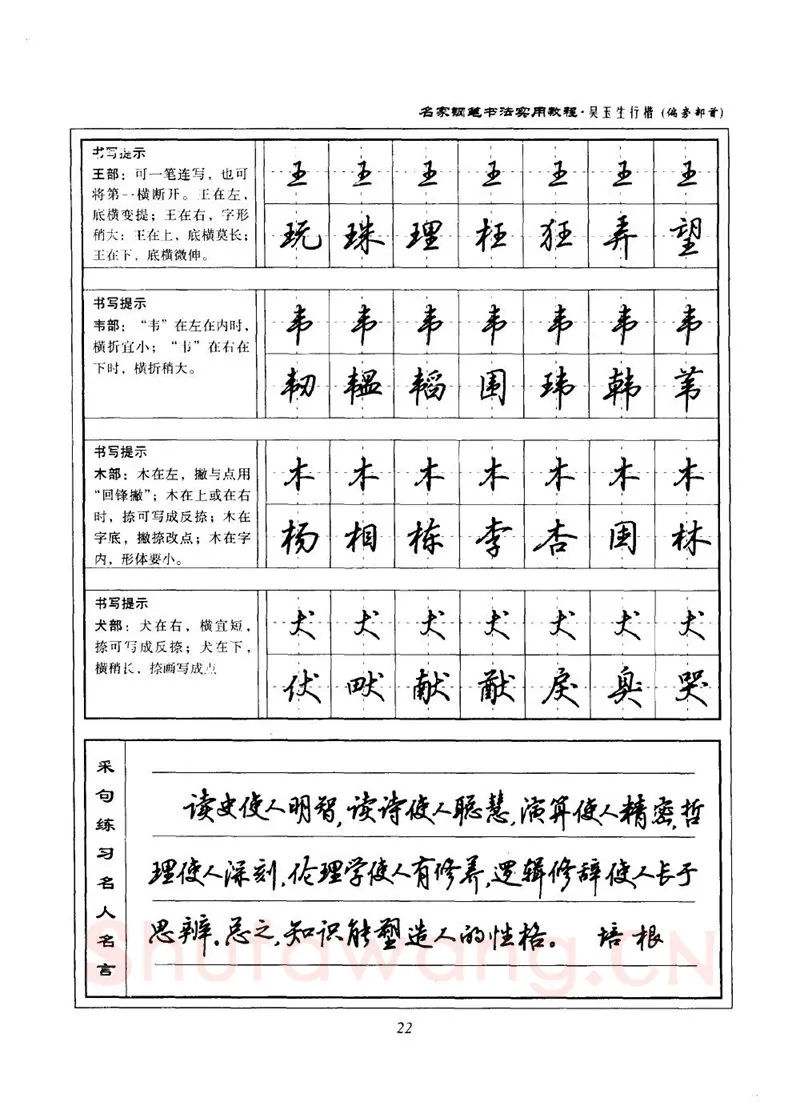 名家钢笔书法实用教程·吴玉生行楷(偏旁部首)
书写提示
王部：可一笔连写，也可
将第一横断开。王在左，
底横变提；王在右，字形
稍大；王在上，底横莫长；
王在下，底横微伸。
王 王 王 王 王 王 王
玩 珠 理 枉 狂 弄 望
书写提示
韦部：“韦”在左在内时，
横折宜小；“韦”在右在
下时，横折稍大。
韦 韦 韦 韦 韦 韦 韦
韧 韫 韬 围 玮 韩 苇
书写提示
木部：木在左，撇与点用
“回锋撇”；木在上或在右
时，捺可写成反捺；木在
字底，撇捺改点；木在字
内，形体要小。
木 木 木 木 木 木 木
杨 相 栋 李 杏 困 林
书写提示
犬部：犬在右，横宜短，
捺可写成反捺；犬在下，
横稍长，捺画写成点
犬 犬 犬 犬 犬 犬 犬
伏 畎 献 猷 戾 臭 哭
采句练习名人名言
读史使人明智，读诗使人聪慧，演算使人精密，哲
理使人深刻，伦理学使人有修养，逻辑修辞使人长于
思辨。总之，知识能塑造人的性格。 培根
Shufawang.CN
22